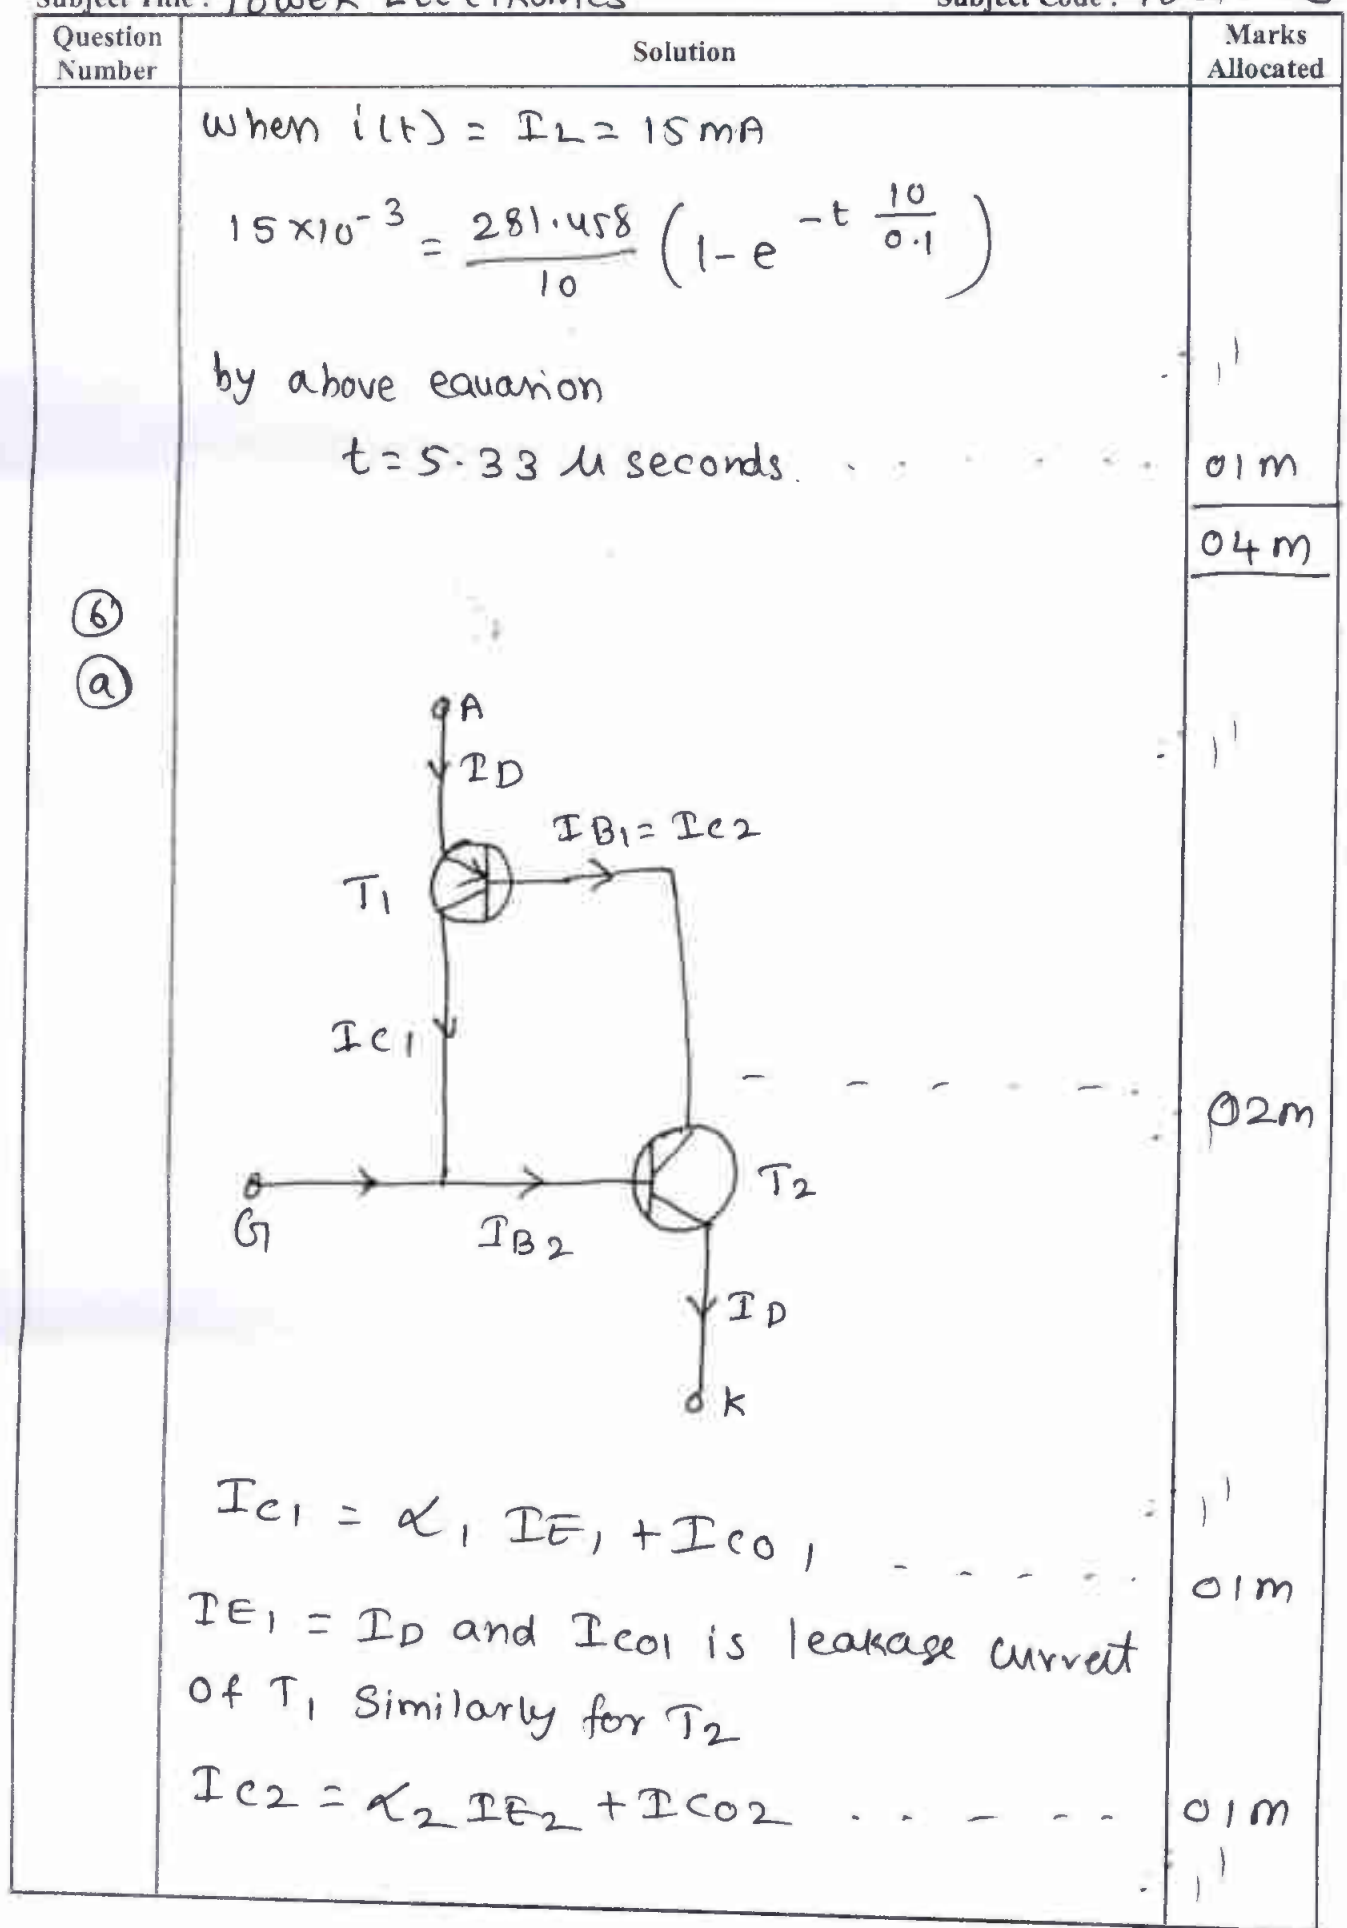 Subject Title : POWER ELECTRONICS
Subject Code :
Question Number
Solution
Marks Allocated
when i(t) = IL = 15 mA
15 × 10^-3 = 281.458 / 10 (1 - e^(-t 10/0.1))
by above equation
t = 5.33 μ seconds.
01m
04m
6
a
A
ID
IB1 = IC2
T1
IC1
02m
T2
G
IB2
ID
K
IC1 = α1 IE1 + ICO1
01m
IE1 = ID and ICO1 is leakage current
of T1 Similarly for T2
IC2 = α2 IE2 + ICO2
01m